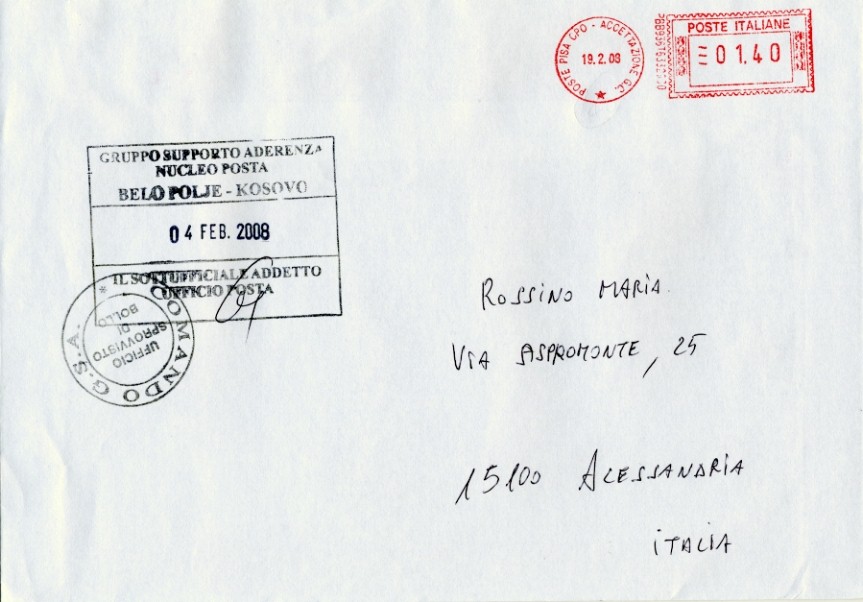 POSTE PISA CPO - ACCETTAZIONE G.C.
19.2.08
POSTE ITALIANE
01.40
GRUPPO SUPPORTO ADERENZA
NUCLEO POSTA
BELO POLJE - KOSOVO
04 FEB. 2008
* IL SOTTUFFICIALE ADDETTO
UFFICIO POSTA
COMANDO G.S.A.
UFFICIO
SPROVVISTO
DI
BOLLO
ROSSINO MARIA
VIA ASPROMONTE, 25
15100 ALESSANDRIA
ITALIA